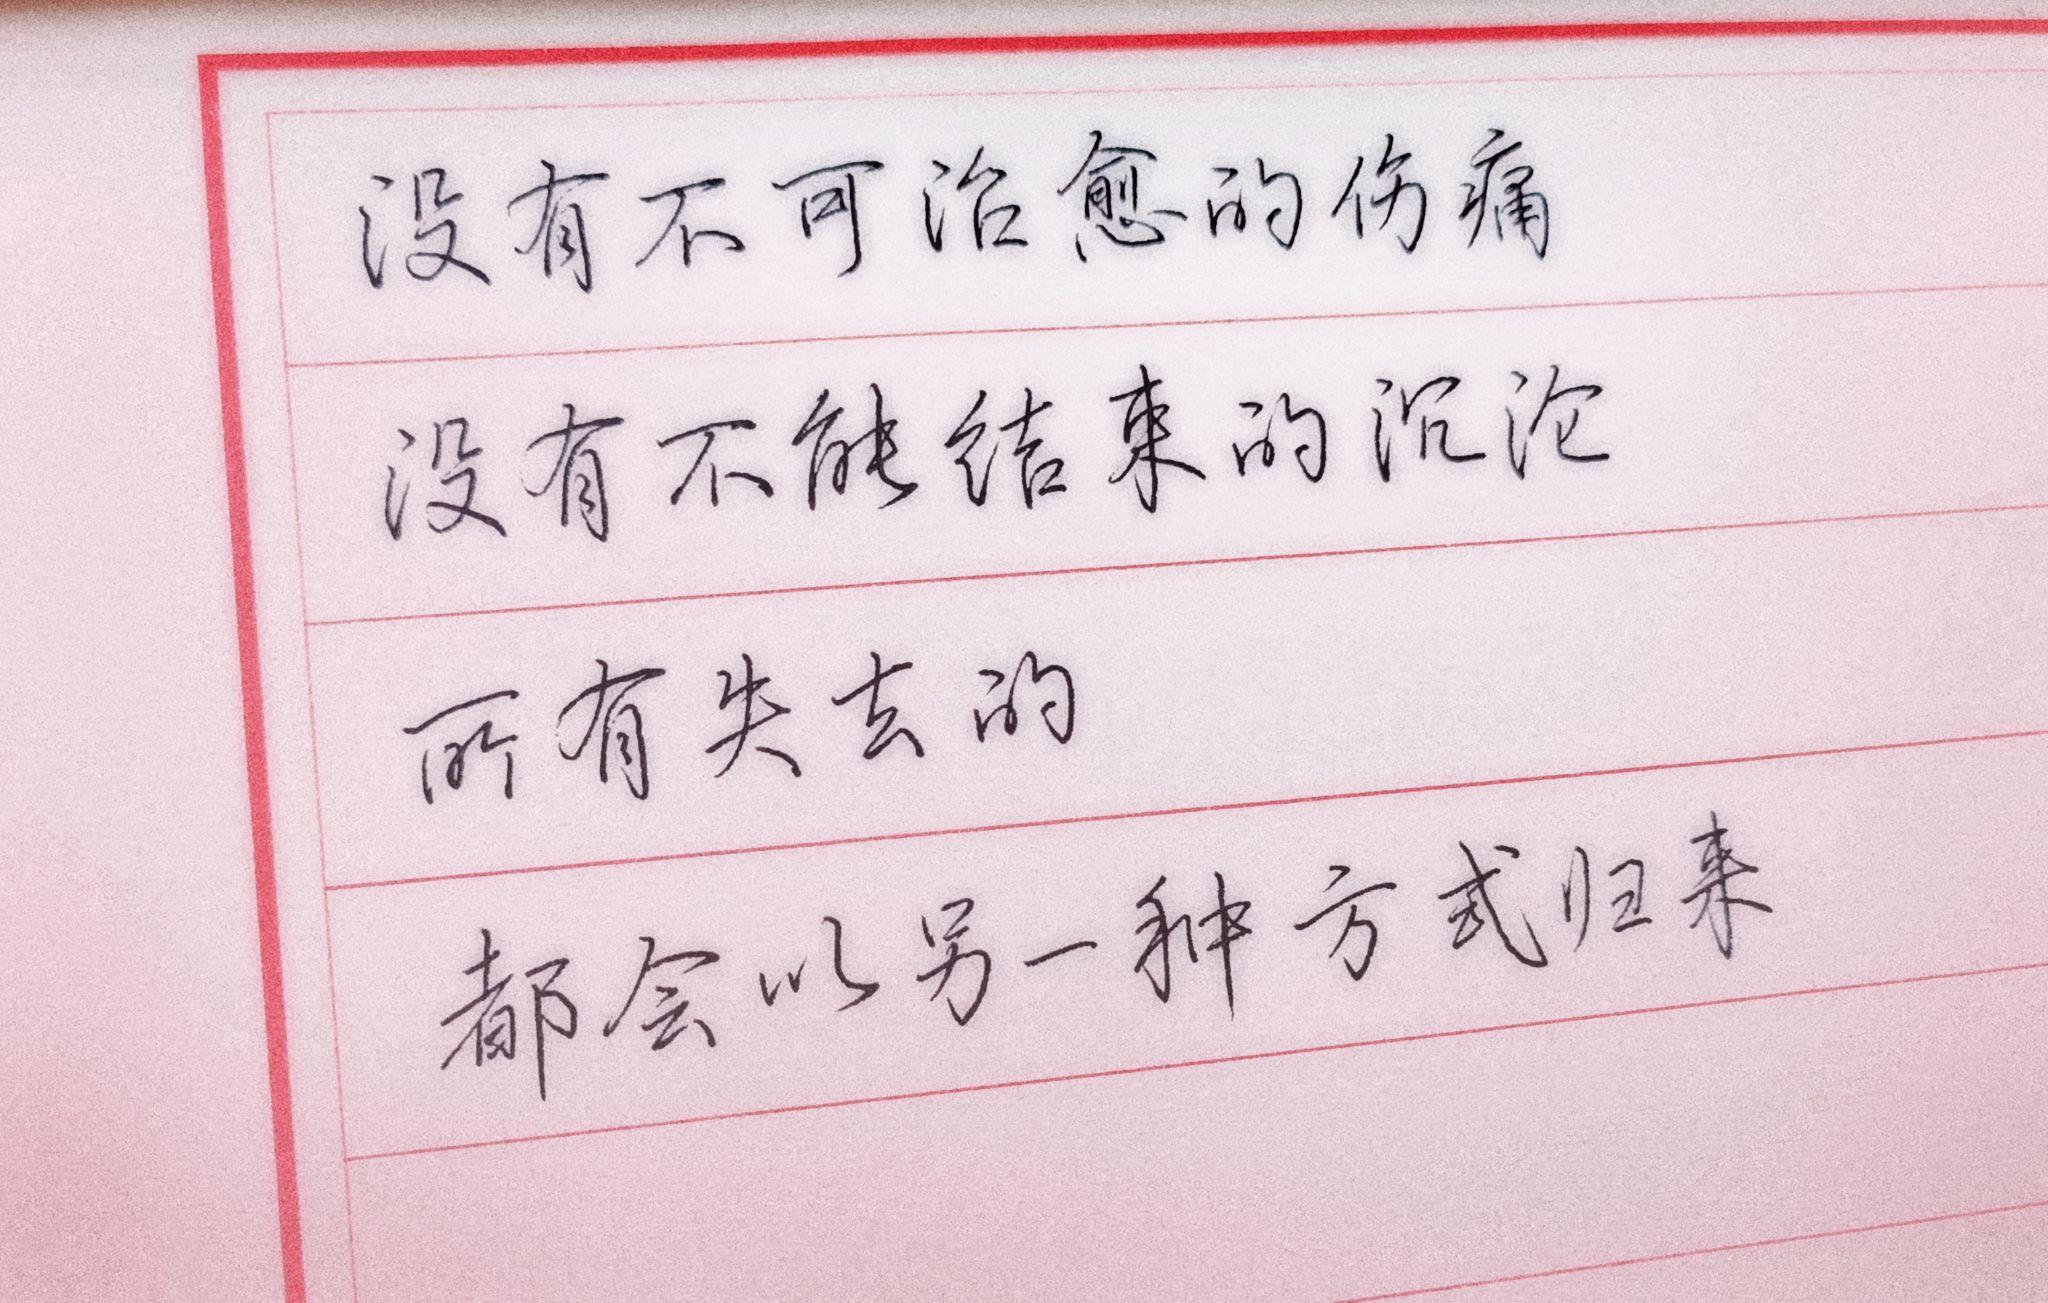 没有不可治愈的伤痛
没有不能结束的沉沦
所有失去的
都会以另一种方式归来